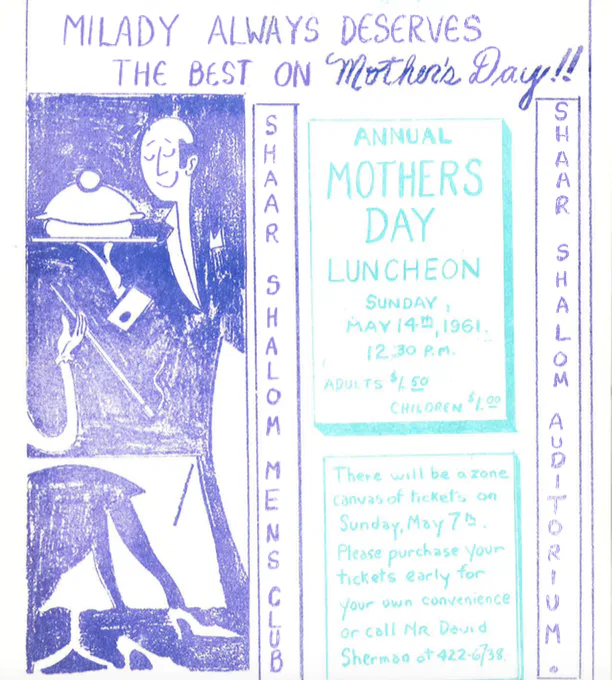 MILADY ALWAYS DESERVES
THE BEST ON Mother's Day!!
SHAAR SHALOM MENS CLUB
ANNUAL
MOTHERS
DAY
LUNCHEON
SUNDAY,
MAY 14th, 1961.
12.30 P.M.
ADULTS $1.50
CHILDREN $1.00
There will be a zone
canvas of tickets on
Sunday, May 7th.
Please purchase your
tickets early for
your own convenience
or call MR. David
Sherman at 422-6738.
SHAAR SHALOM AUDITORIUM.